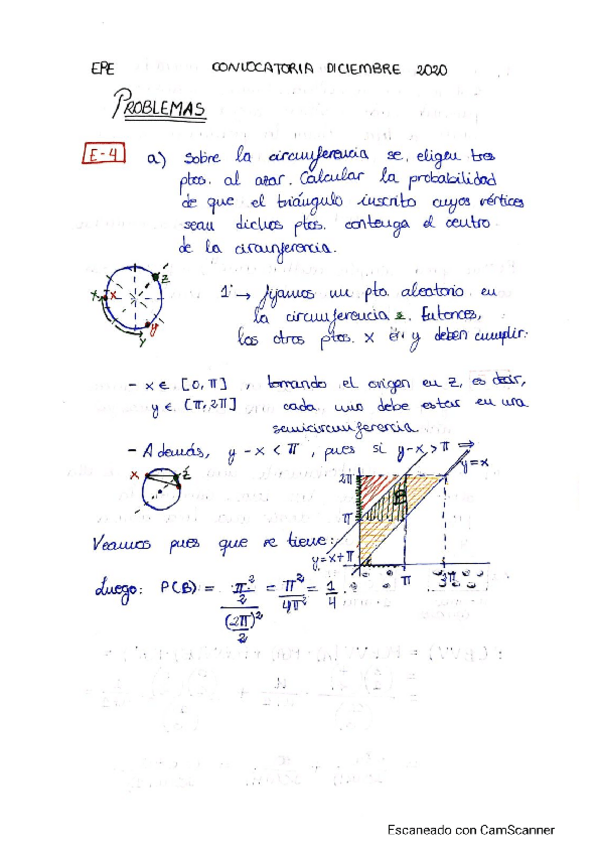 EPE CONVOCATORIA DICIEMBRE 2020
PROBLEMAS
E-4 a) Sobre la circunferencia se eligen tres
ptos. al azar. Calcular la probabilidad
de que el triángulo inscrito cuyos vértices
sean dichos ptos. contenga el centro
de la circunferencia.
x x z y y
1º → Fijamos un pto. aleatorio en
la circunferencia z. Entonces,
los otros ptos. x e y deben cumplir:
- x ∈ [0, π] , tomando el origen en z, es decir,
y ∈ [π, 2π] cada uno debe estar en una
semicircunferencia
- Además, y - x < π , pues si y-x > π ⇒
x z
2π B y=x
π
Veamos pues que se tiene:
y=x+π
π
Luego: P(B) = π²/2 / (2π)²/2 = π²/4π² = 1/4
Escaneado con CamScanner